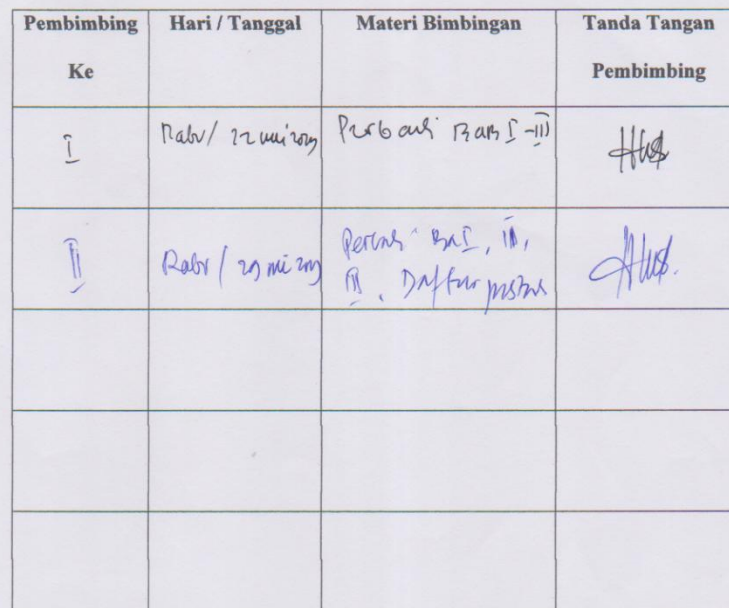 Pembimbing Ke
Hari / Tanggal
Materi Bimbingan
Tanda Tangan Pembimbing
I
Rabu / 22 mei
Perbaiki BAB I - III
II
Rabu / 29 mei
Perbaiki Bab I, II,
III, Daftar pustaka